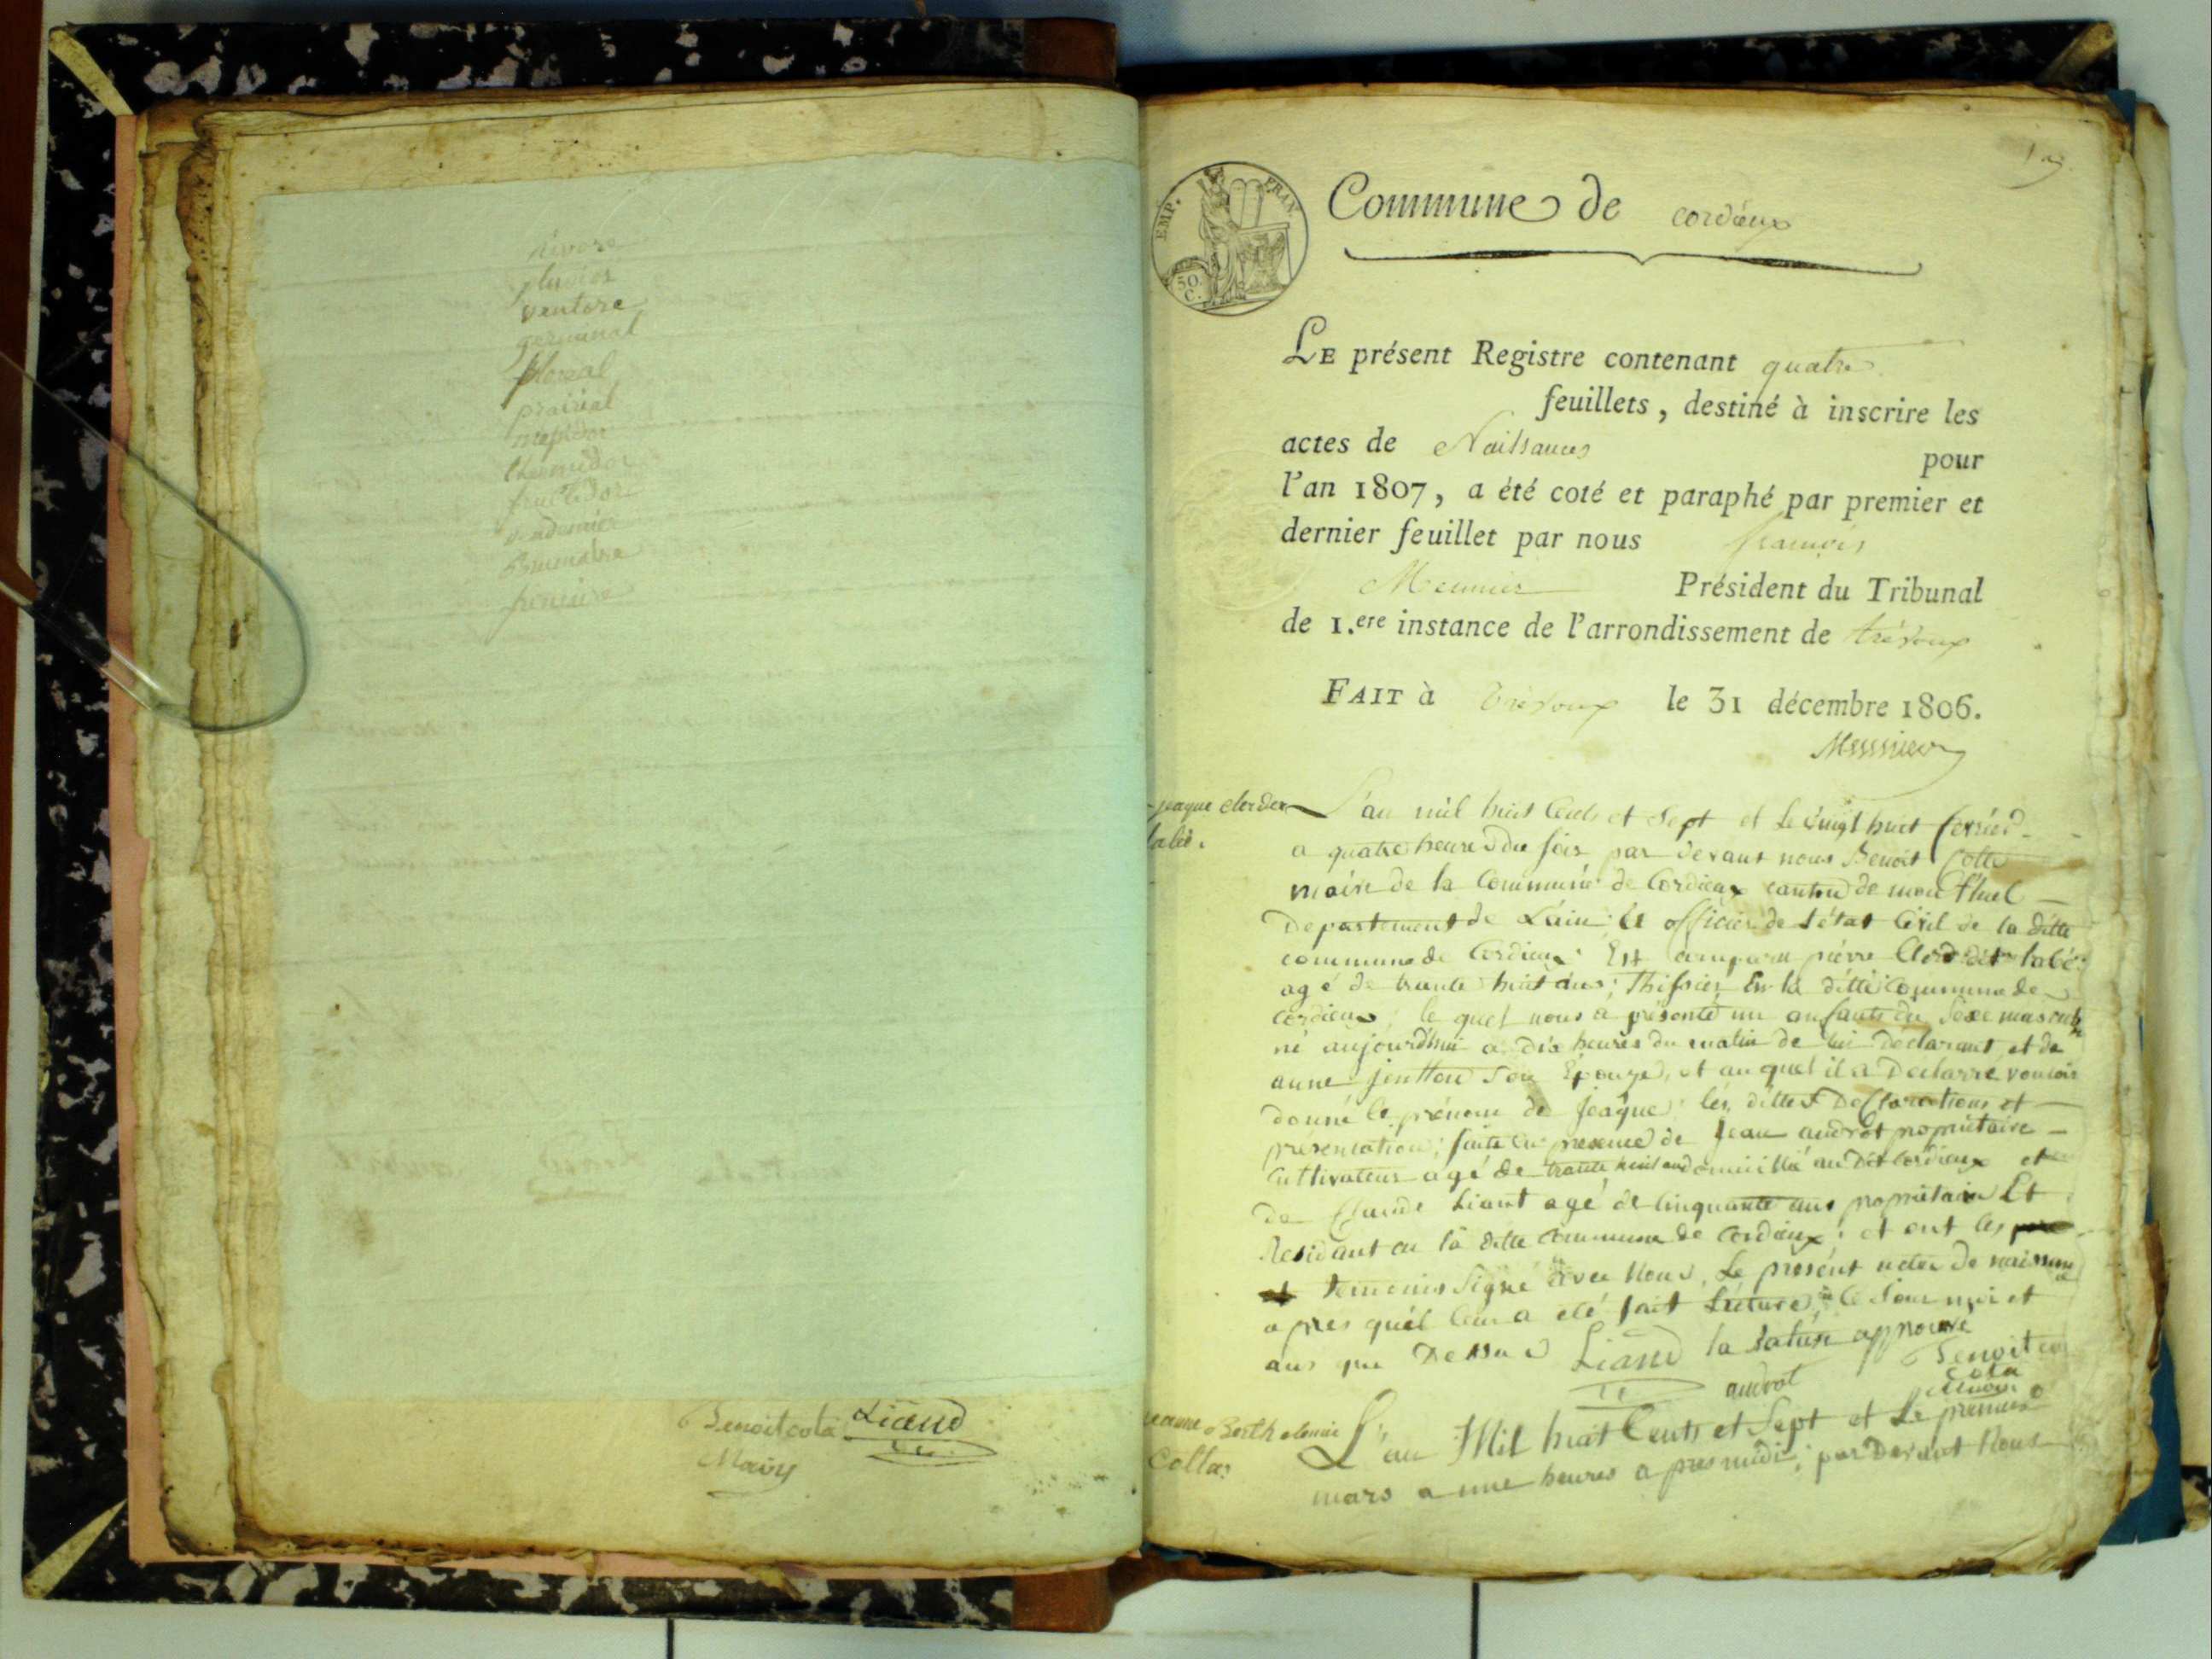 nivose
pluvios
ventose
germinal
floreal
prairial
mesidor
thermidor
fructidor
vendemier
Brumaire
frimaire
Benoit cola Liand
Maire
EMP. FRAN
50 C.
Commune de cordieux
LE présent Registre contenant quatre
feuillets, destiné à inscrire les
actes de Naissances
pour
l'an 1807, a été coté et paraphé par premier et
dernier feuillet par nous françois
Meunier Président du Tribunal
de 1.ere instance de l'arrondissement de trévoux
FAIT à trévoux le 31 décembre 1806.
jeaque
labé.
L'an mil huit Cents et Sept et Le vingt huit fevrier
a quatre heures du soir par devant nous Benoit Colla
maire de la Commune de Cordieux canton de mont Luel
Departement de L'ain, et officier de l'état Civil de la ditte
commune de Cordieux Est comparu pierre labé
agé de trante huit ans; Thissier en la ditte Commune de
Cordieux, le quel nous a présenté un anfant du Sexe masculin
né aujourd'hui a dix heures du matin de lui déclarant, et de
anne Son Epouze, et au quel il a Declarre vouloir
donné le prénom de jeaque; les dittes Declarations et
présentation; faite en presence de Jean audrot propriétaire
Cultivateur agé de trante huit ans domicillié au dit Cordieux et
De Claude Liant agé de Cinquante ans propriétaire Et
Residant en la ditte Commune de Cordieux; et ont les
temoins Signé avec Nous, Le présent acte de naissance
apres qu'il leur a été fait Lecture, le Jour moi et
ans que Dessus Liand la rature approuvé
audrot Benoit cola
Maire
jeanne Berthelemie
Colla
L'an Mil huit Cents et Sept et Le premier
mars a une heures apres midi; par Devant Nous